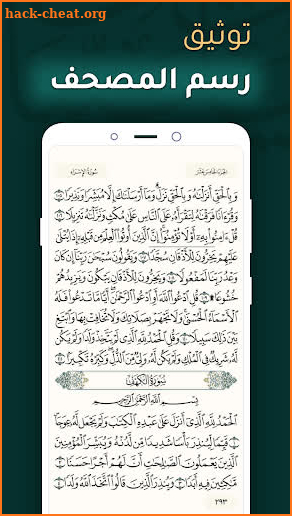 hack-cheat.org
توثيق
رسم المصحف
الجزء الخامس عشر سورة الإسراء
وَبِٱلْحَقِّ أَنزَلْنَٰهُ وَبِٱلْحَقِّ نَزَلَ ۗ وَمَآ أَرْسَلْنَٰكَ إِلَّا مُبَشِّرًا وَنَذِيرًا ١٠٥
وَقُرْءَانًا فَرَقْنَٰهُ لِتَقْرَأَهُۥ عَلَى ٱلنَّاسِ عَلَىٰ مُكْثٍ وَنَزَّلْنَٰهُ تَنزِيلًا ١٠٦
قُلْ ءَامِنُوا۟ بِهِۦٓ أَوْ لَا تُؤْمِنُوٓا۟ ۚ إِنَّ ٱلَّذِينَ أُوتُوا۟ ٱلْعِلْمَ مِن قَبْلِهِۦٓ إِذَا يُتْلَىٰ
عَلَيْهِمْ يَخِرُّونَ لِلْأَذْقَانِ سُجَّدًا ١٠٧ وَيَقُولُونَ سُبْحَٰنَ رَبِّنَآ إِن كَانَ
وَعْدُ رَبِّنَا لَمَفْعُولًا ١٠٨ وَيَخِرُّونَ لِلْأَذْقَانِ يَبْكُونَ وَيَزِيدُهُمْ
خُشُوعًا ١٠٩ قُلِ ٱدْعُوا۟ ٱللَّهَ أَوِ ٱدْعُوا۟ ٱلرَّحْمَٰنَ ۖ أَيًّا مَّا تَدْعُوا۟ فَلَهُ
ٱلْأَسْمَآءُ ٱلْحُسْنَىٰ ۚ وَلَا تَجْهَرْ بِصَلَاتِكَ وَلَا تُخَافِتْ بِهَا وَٱبْتَغِ
بَيْنَ ذَٰلِكَ سَبِيلًا ١١٠ وَقُلِ ٱلْحَمْدُ لِلَّهِ ٱلَّذِى لَمْ يَتَّخِذْ وَلَدًا وَلَمْ يَكُن
لَّهُۥ شَرِيكٌ فِى ٱلْمُلْكِ وَلَمْ يَكُن لَّهُۥ وَلِىٌّ مِّنَ ٱلذُّلِّ ۖ وَكَبِّرْهُ تَكْبِيرًۢا ١١١
سُورَةُ الكَهْفِ
بِسْمِ ٱللَّهِ ٱلرَّحْمَٰنِ ٱلرَّحِيمِ
ٱلْحَمْدُ لِلَّهِ ٱلَّذِىٓ أَنزَلَ عَلَىٰ عَبْدِهِ ٱلْكِتَٰبَ وَلَمْ يَجْعَل لَّهُۥ عِوَجَا
١ قَيِّمًا لِّيُنذِرَ بَأْسًا شَدِيدًا مِّن لَّدُنْهُ وَيُبَشِّرَ ٱلْمُؤْمِنِينَ
ٱلَّذِينَ يَعْمَلُونَ ٱلصَّٰلِحَٰتِ أَنَّ لَهُمْ أَجْرًا حَسَنًا ٢
مَّٰكِثِينَ فِيهِ أَبَدًا ٣ وَيُنذِرَ ٱلَّذِينَ قَالُوا۟ ٱتَّخَذَ ٱللَّهُ وَلَدًا ٤
٢٩٣